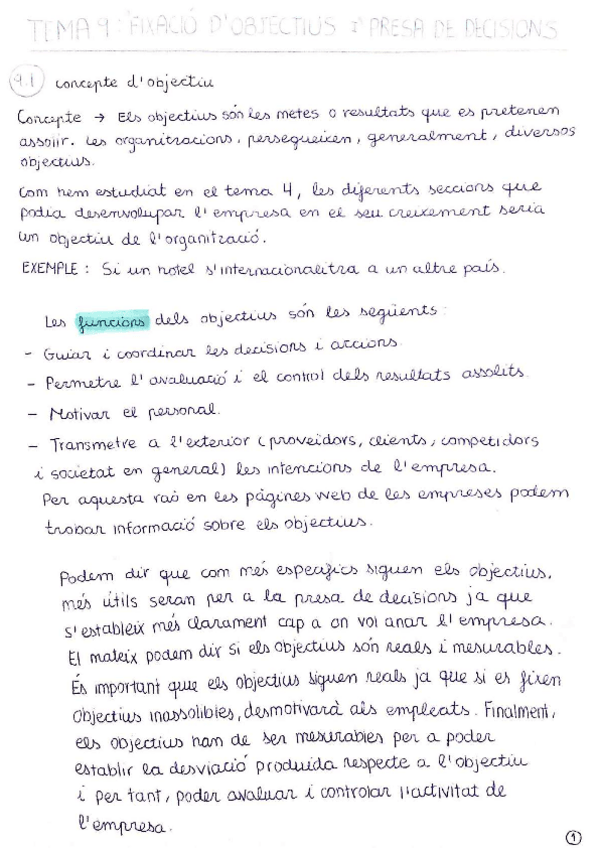 TEMA 9: FIXACIÓ D'OBJECTIUS I PRESA DE DECISIONS
9.1 concepte d'objectiu
Concepte → Els objectius són les metes o resultats que es pretenen
assolir. Les organitzacions, persegueixen, generalment, diversos
objectius.
Com hem estudiat en el tema 4, les diferents seccions que
podia desenvolupar l'empresa en el seu creixement seria
un objectiu de l'organització.
EXEMPLE: Si un hotel s'internacionalitza a un altre país.
Les funcions dels objectius són les següents:
- Guiar i coordinar les decisions i accions.
- Permetre l'avaluació i el control dels resultats assolits.
- Motivar el personal.
- Transmetre a l'exterior (proveïdors, clients, competidors
i societat en general) les intencions de l'empresa.
Per aquesta raó en les pàgines web de les empreses podem
trobar informació sobre els objectius.
Podem dir que com més específics siguen els objectius,
més útils seran per a la presa de decisions ja que
s'estableix més clarament cap a on vol anar l'empresa.
El mateix podem dir si els objectius són reals i mesurables.
És important que els objectius siguen reals ja que si es fixen
objectius inassolibles, desmotivarà als empleats. Finalment,
els objectius han de ser mesurables per a poder
establir la desviació produïda respecte a l'objectiu
i per tant, poder avaluar i controlar l'activitat de
l'empresa.
1